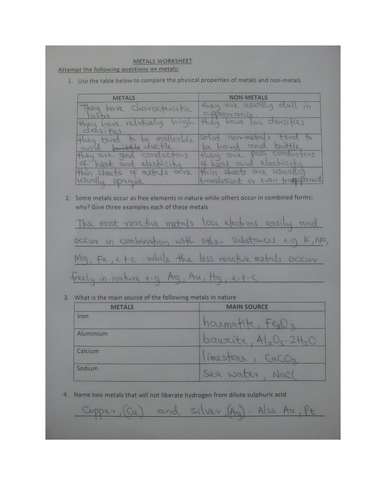 METALS WORKSHEET
Attempt the following questions on metals:
1. Use the table below to compare the physical properties of metals and non-metals
METALS NON-METALS
They have characteristic they are usually dull in
lustre appearance.
they have relatively high they have low densities
densities
they tend to be malleable solid non-metals tend to
and ductile be hard and brittle,
they are good conductors they are poor conductors
of heat and electricity of heat and electricity
thin sheets of metals are thin sheets are usually
usually opaque translucent or even transparent
2. Some metals occur as free elements in nature while others occur in combined forms;
why? Give three examples each of these metals
The most reactive metals lose electrons easily and
occur in combination with other substances e.g K, Na,
Mg, Fe, e.t.c. While the less reactive metals occur
freely in nature e.g Ag, Au, Hg, e.t.c
3. What is the main source of the following metals in nature
METALS MAIN SOURCE
Iron haematite, Fe2O3
Aluminium bauxite, Al2O3·2H2O
Calcium limestone, CaCO3
Sodium Sea water, NaCl
4. Name two metals that will not liberate hydrogen from dilute sulphuric acid
Copper, (Cu) and silver, (Ag) - Also Au, Pt